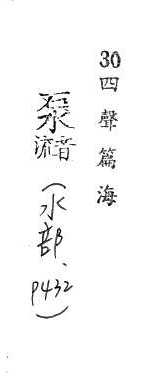 30四聲篇海
音流（水部、P432）